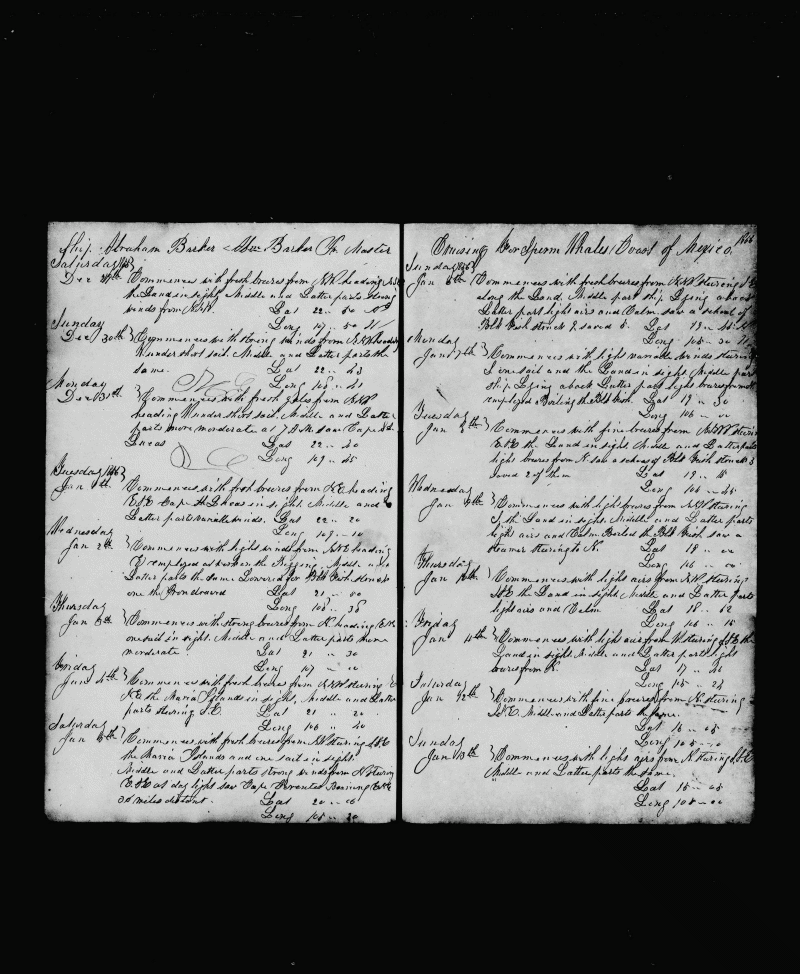 Ship Abraham Barker Abm Barker Jr Master
Saturday
Dec 29th Commences with fresh breezes from NW heading
the Land in sight, Middle and Latter parts strong
winds from NW. Lat 22 .. 50 N
Long 109 .. 50 W
Sunday
Dec 30th Commences with strong winds from NNW heading
W under short sail. Middle and Latter parts the
same. Lat 22 .. 43
Long 108 .. 41
Monday
Dec 31st Commences with fresh gales from NNW
heading W under short sail. Middle and Latter
parts more moderate at 7 A.M. saw Cape St
Lucas Lat 22 .. 40
Long 109 .. 45
Tuesday
Jan 1st Commences with fresh breezes from heading
Cape St Lucas in sight. Middle and
Latter parts variable winds. Lat 22 .. 20
Long 109 .. 10
Wednesday
Jan 2nd Commences with light winds from NNE heading
employed at work on the Rigging. Middle and
Latter parts the same Lowered for Blk Fish struck
one the Iron drawed Lat 21 .. 50
Long 108 .. 36
Thursday
Jan 3rd Commences with strong breezes from N heading
one sail in sight. Middle and Latter parts more
moderate. Lat 21 .. 30
Long 107 .. 00
Friday
Jan 4th Commences with fresh breezes from NNW steering
the Maria Islands in sight, Middle and Latter
parts steering S.E. Lat 21 .. 20
Long 106 .. 40
Saturday
Jan 5th Commences with fresh breezes from NW steering
the Maria Islands and one sail in sight.
Middle and Latter parts strong winds from N steering
at day light saw Cape Corrientes Bearing
30 miles distant. Lat 20 ..
Long 105 .. 30
Cruising for Sperm Whales Coast of Mexico
Sunday
Jan 6th Commences with fresh breezes from NNW steering
along the Land, Middle part ship Lying aback
Latter part light airs and Calm. saw a school of
Blk Fish struck saved Lat 19 .. 45
Long 105 .. 30
Monday
Jan 7th Commences with light variable winds steering
one sail and the Land in sight Middle part
ship Lying aback Latter part light breezes from
employed Boiling the Blk Fish. Lat 19 .. 30
Long 106 .. 00
Tuesday
Jan 8th Commences with fine breezes from NNW steering
the Land in sight. Middle and Latter parts
light breezes from N saw a school of Blk Fish struck 3
saved 2 of them Lat 19 .. 15
Long 106 .. 45
Wednesday
Jan 9th Commences with light breezes from NW steering
the Land in sight. Middle and Latter parts
light airs and Calm Boiled the Blk Fish saw a
steamer steering to N. Lat 18 .. 00
Long 106 .. 00
Thursday
Jan 10th Commences with light airs from NW steering
the Land in sight Middle and Latter parts
light airs and Calm Lat 18 .. 12
Long 106 .. 15
Friday
Jan 11th Commences with light airs from W steering
Land in sight. Middle and Latter part light
breezes from N. Lat 17 .. 46
Long 105 .. 24
Saturday
Jan 12th Commences with fine breezes from N steering
S.E. Middle and Latter parts the same.
Lat 16 .. 05
Long 105 ..
Sunday
Jan 13th Commences with light airs from N steering
Middle and Latter parts the same.
Lat 15 .. 05
Long 105 .. 00